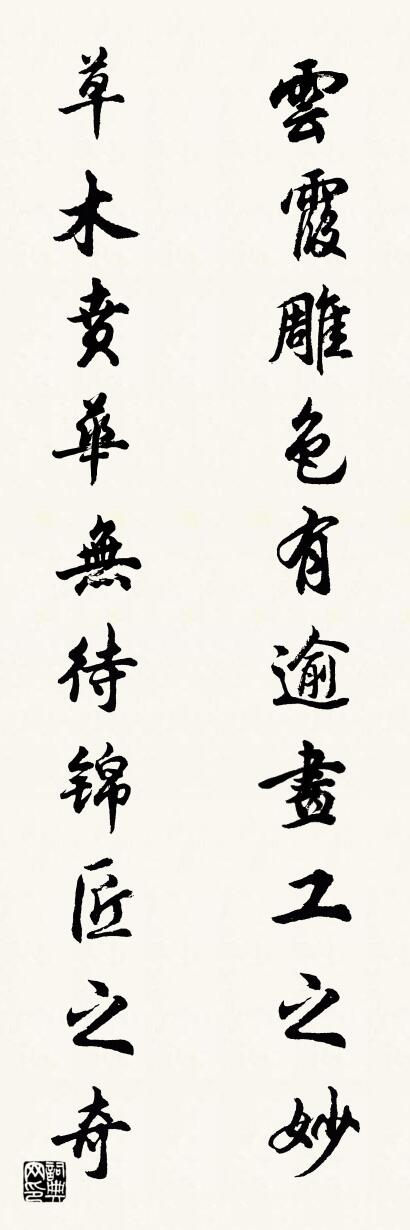 雲霞雕色有逾畫工之妙
草木賁華無待锦匠之奇
詞典网印